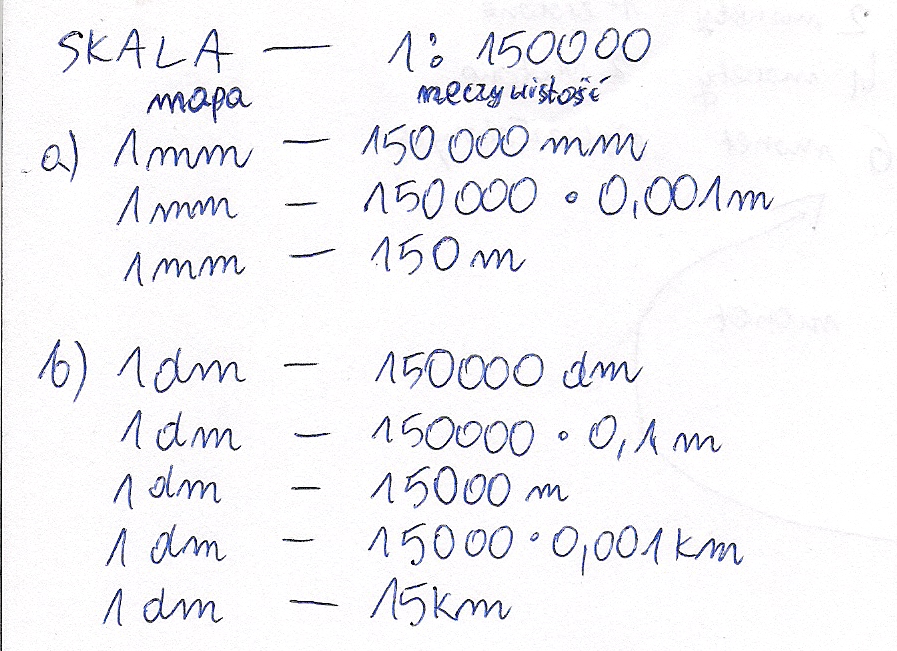 SKALA — 1: 150000
mapa rzeczywistość
a) 1mm — 150 000 mm
1mm – 150000 • 0,001m
1mm — 150 m
b) 1dm – 150000 dm
1dm – 150000 • 0,1 m
1dm – 15000 m
1dm – 15000 • 0,001km
1dm — 15km